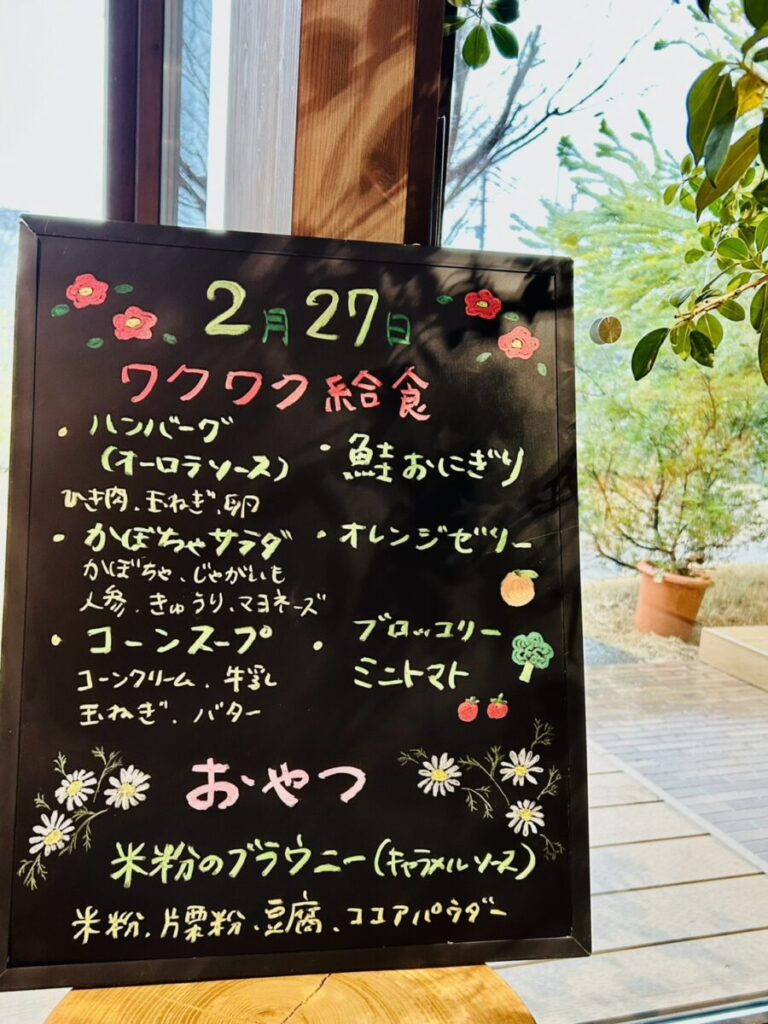 2月27日
ワクワク給食
・ハンバーグ
(オーロラソース)
ひき肉、玉ねぎ、卵
・かぼちゃサラダ
かぼちゃ、じゃがいも
人参、きゅうり、マヨネーズ
・コーンスープ
コーンクリーム、牛乳
玉ねぎ、バター
・鮭おにぎり
・オレンジゼリー
・ブロッコリー
ミニトマト
おやつ
米粉のブラウニー(キャラメルソース)
米粉、片栗粉、豆腐、ココアパウダー